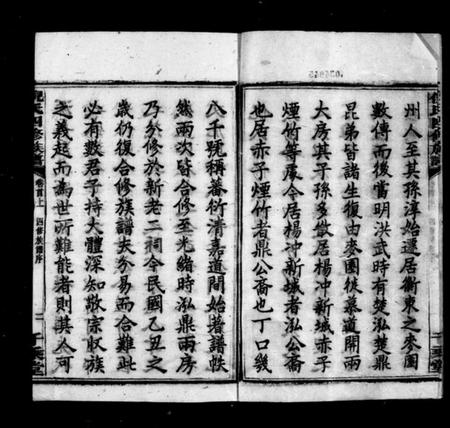 州人至其孫淳始遷居衡東之麥園
數傳而後當明洪武時有楚泓楚鼎
昆弟皆諸生復由麥園徙慕道開兩
大房其子孫多散居楊冲新城赤子
煙竹等處今居楊冲新城者泓公裔
也居赤子煙竹者鼎公裔也丁口幾
八千號稱蕃衍清嘉道間始著譜帙
然兩次皆合修至光緒時泓鼎兩房
乃分修於新老二祠今民國乙丑之
歲仍復合修族譜夫分易而合難此
必有數君子持大體深知敬宗收族
之義起而為世所難能者則其人可
卷首上
四修族譜序
二